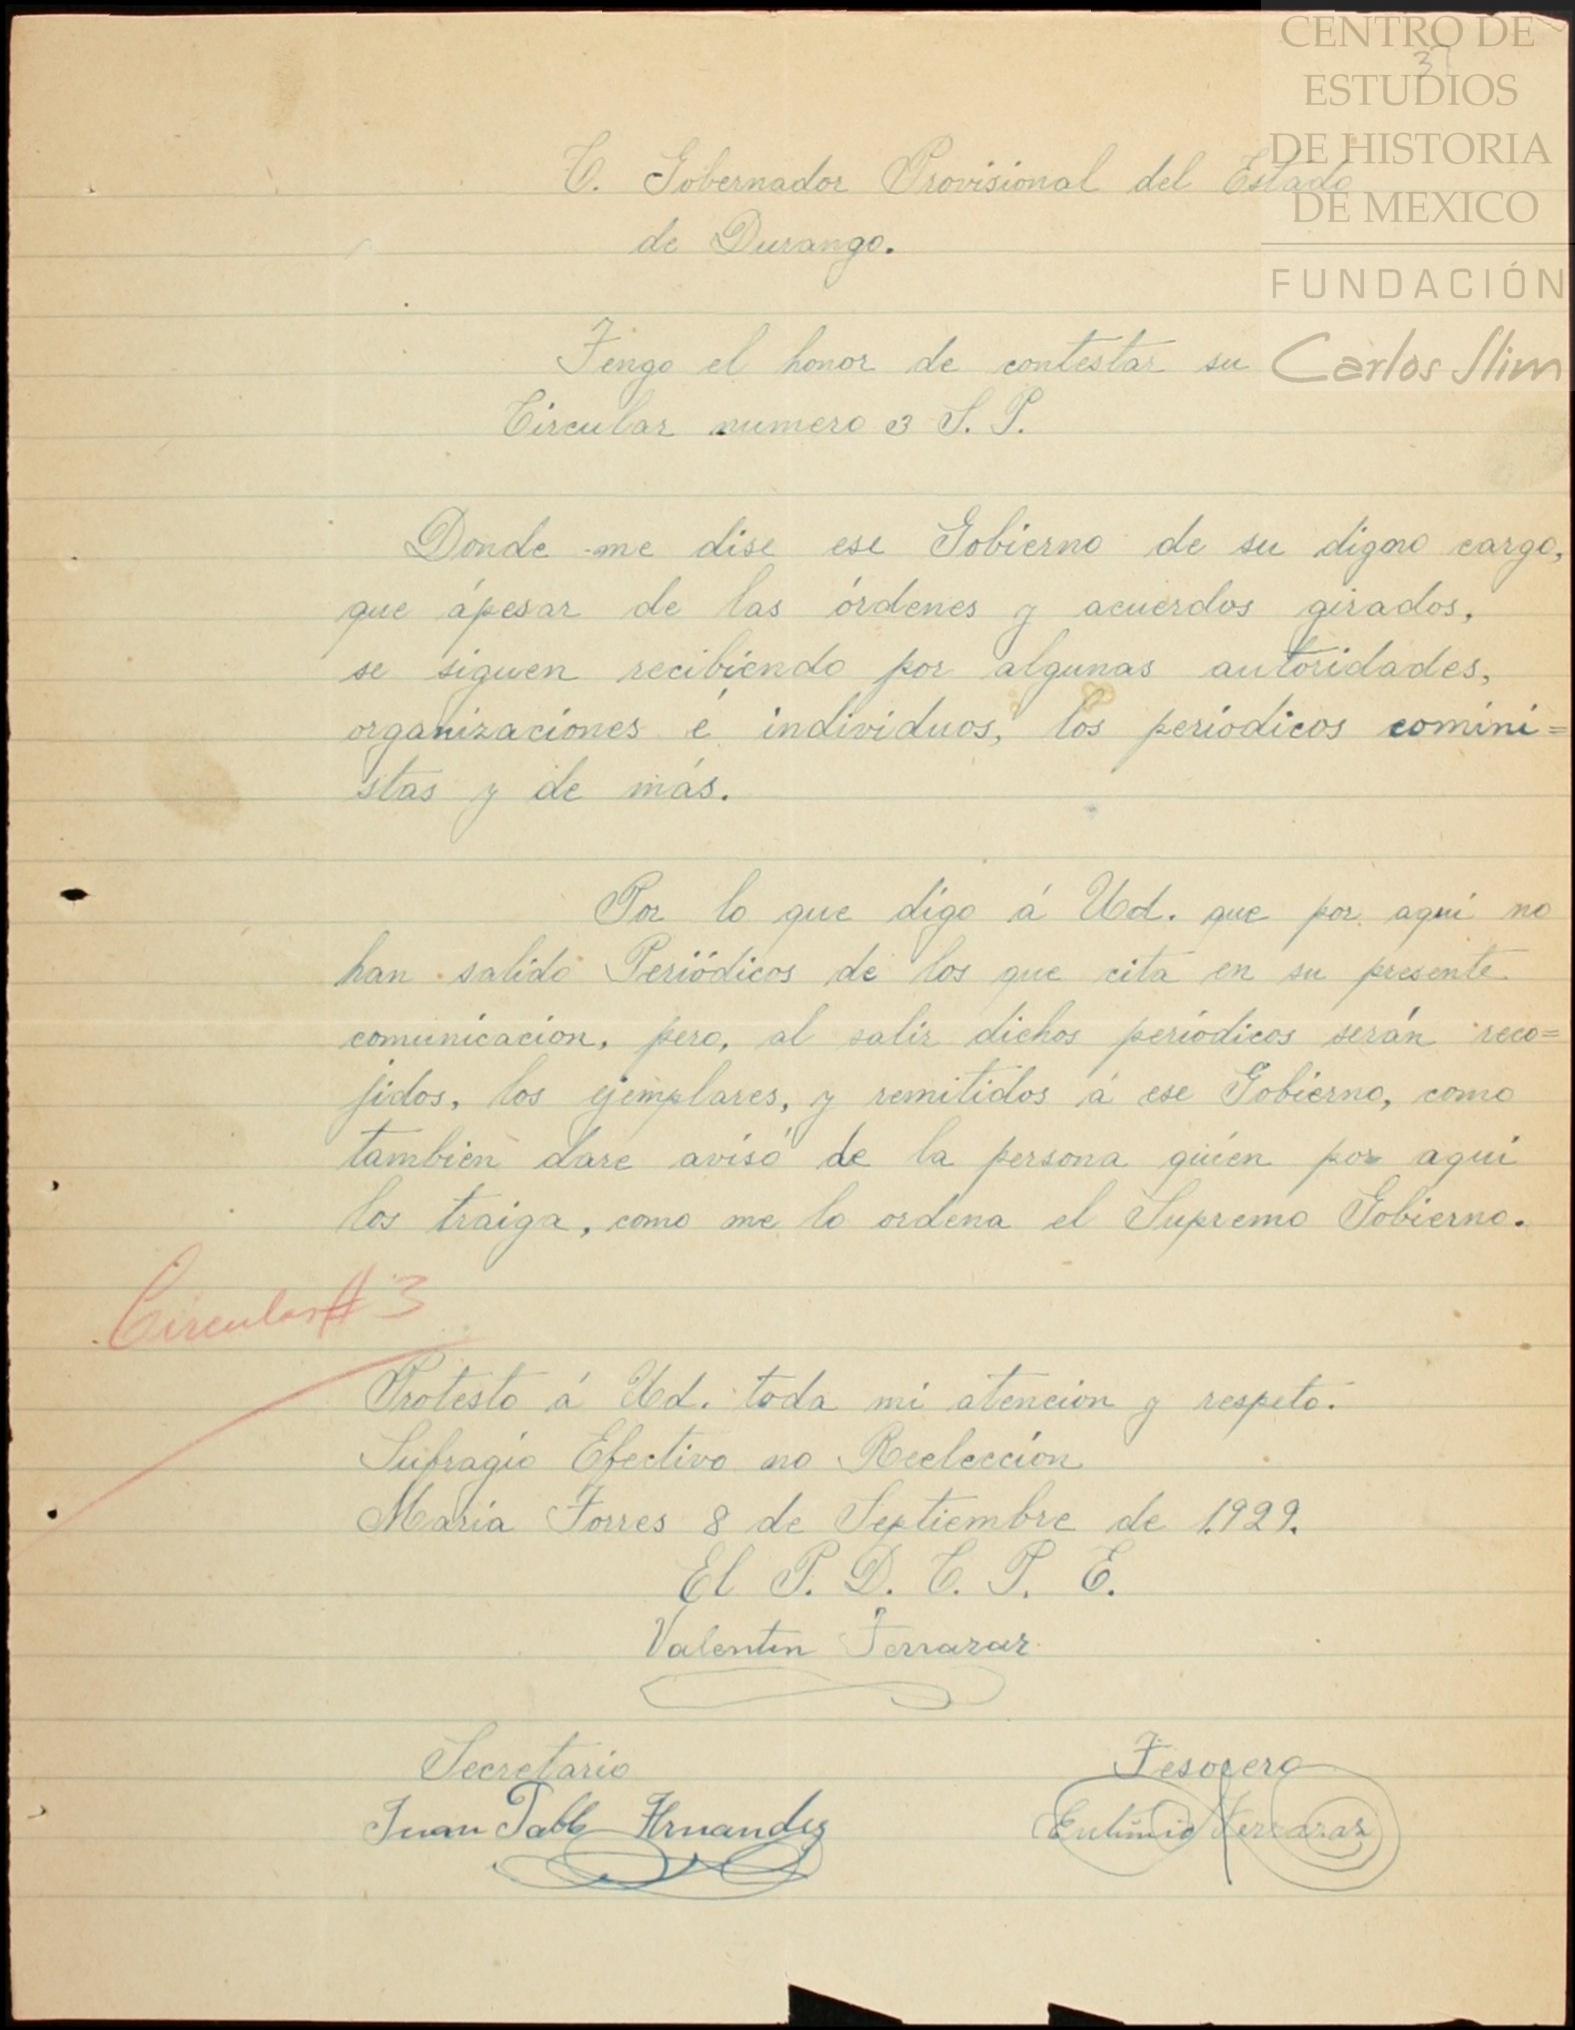 CENTRO DE
ESTUDIOS
DE HISTORIA
DE MEXICO
FUNDACIÓN
Carlos Slim
37
C. Gobernador Provisional del Estado
de Durango.
Tengo el honor de contestar su
Circular numero 3 S. P.
Donde me dise ese Gobierno de su digno cargo,
que ápesar de las órdenes y acuerdos girados,
se siguen recibiendo por algunas autoridades,
organizaciones é individuos, los periódicos comini=
stas y de más.
Por lo que digo á Ud. que por aqui no
han salido Periódicos de los que cita en su presente
comunicación, pero, al salir dichos periódicos serán reco=
jidos, los ejemplares, y remitidos á ese Gobierno, como
tambien dare aviso de la persona quien por aqui
los traiga, como me lo ordena el Supremo Gobierno.
Circular # 3
Protesto á Ud. toda mi atencion y respeto.
Sufragio Efectivo no Reelección
Maria Torres 8 de Septiembre de 1929.
El P. D. C. P. E.
Valentin Terrazaz
Secretario
Tesorero
Juan Pablo Hrnandez
Terrazas